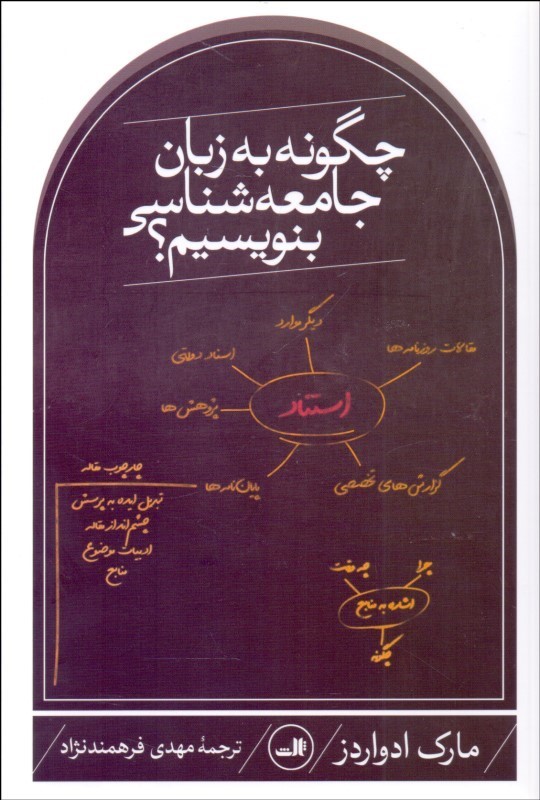 چگونه به زبان
جامعه‌شناسی
بنویسیم؟
دیگر موارد
مقالات روزنامه‌ها
اسناد دولتی
استناد
پژوهش‌ها
گزارش‌های تخصصی
پایان‌نامه‌ها
چارچوب مقاله
تبدیل ایده به پرسش
چشم‌انداز مقاله
ادبیات موضوع
منابع
چرا
چه وقت
اشاره به منابع
چگونه
مارک ادواردز
ثالث
ترجمهٔ مهدی فرهمندنژاد